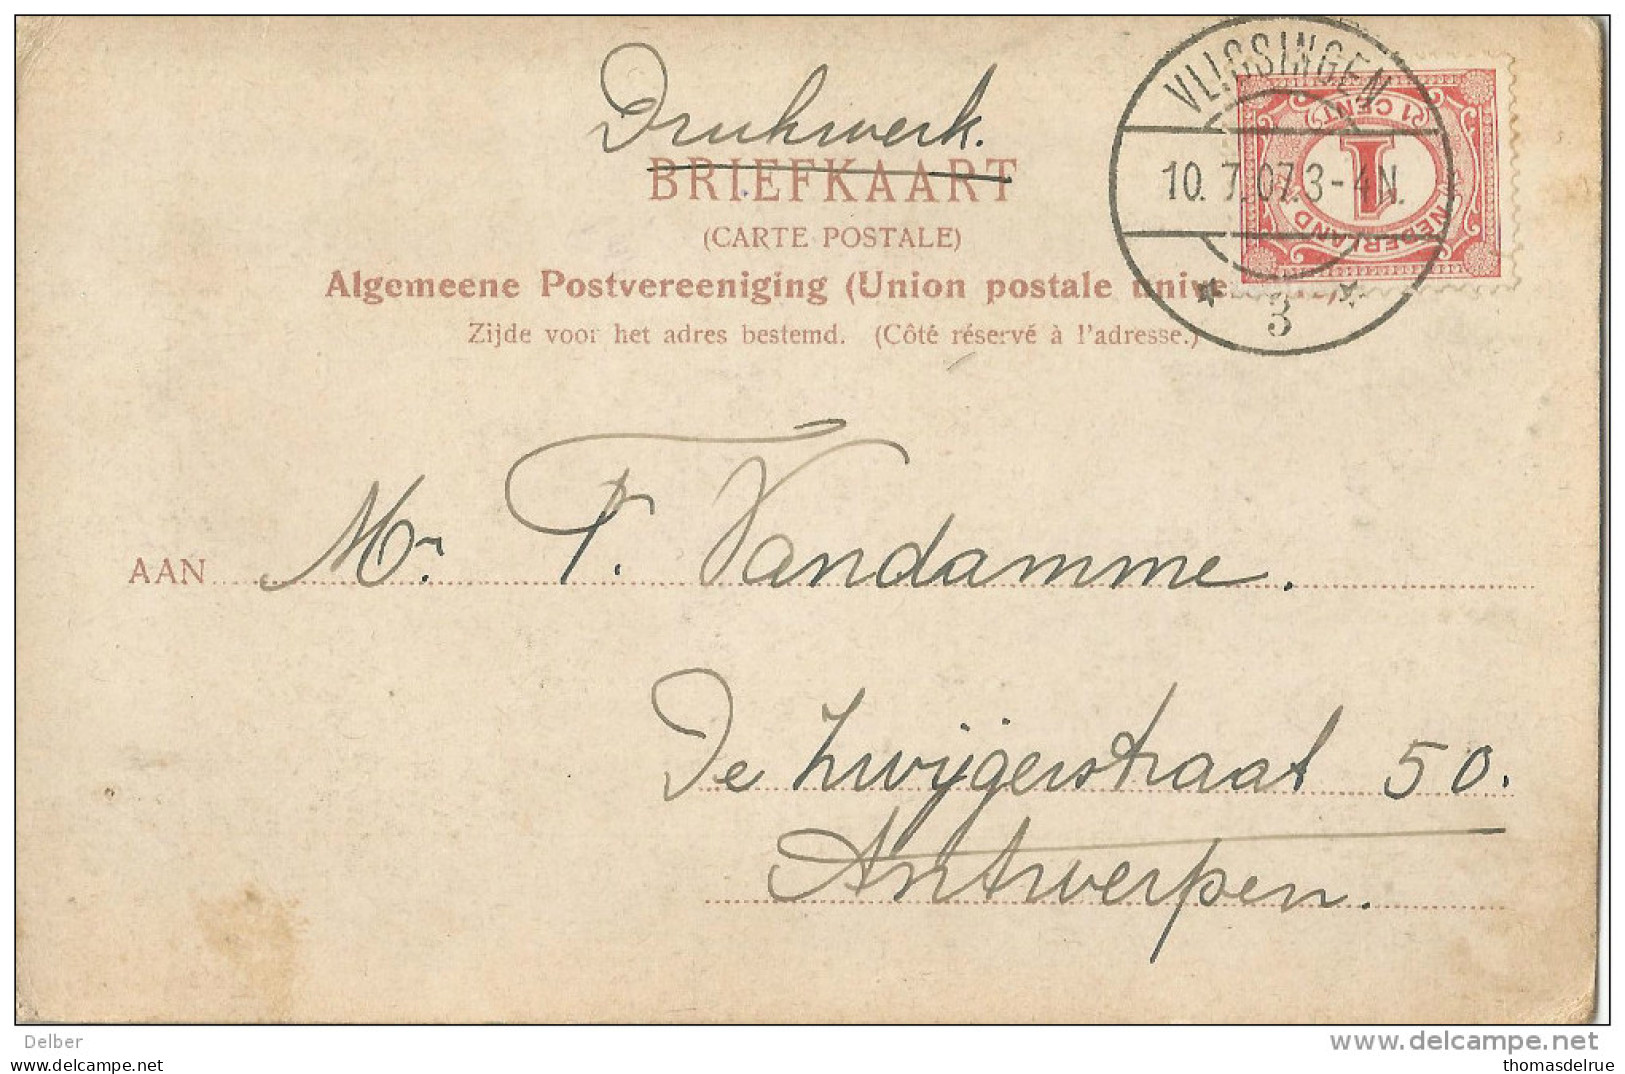 Drukwerk.
BRIEFKAART
(CARTE POSTALE)
Algemeene Postvereeniging (Union postale unive
Zijde voor het adres bestemd. (Côté réservé à l'adresse.)
VLISSINGEN
10. 7. 07. 3-4N.
3
1 CENT
1
NEDERLAND
AAN Mr. F. Vandamme.
De Zwijgerstraat 50.
Antwerpen.
Delber
www.delcampe.net
thomasdelrue